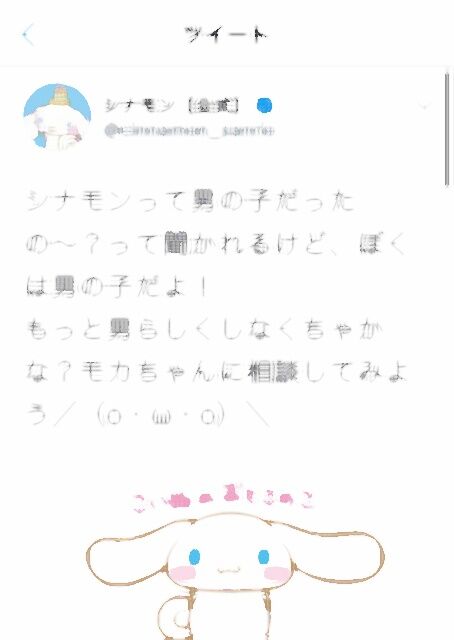 ツイート
シナモン【公式】
シナモンって男の子だった
の～？って聞かれるけど、ぼく
は男の子だよ！
もっと男らしくしなくちゃか
な？モカちゃんに相談してみよ
う／（o・ω・o）＼